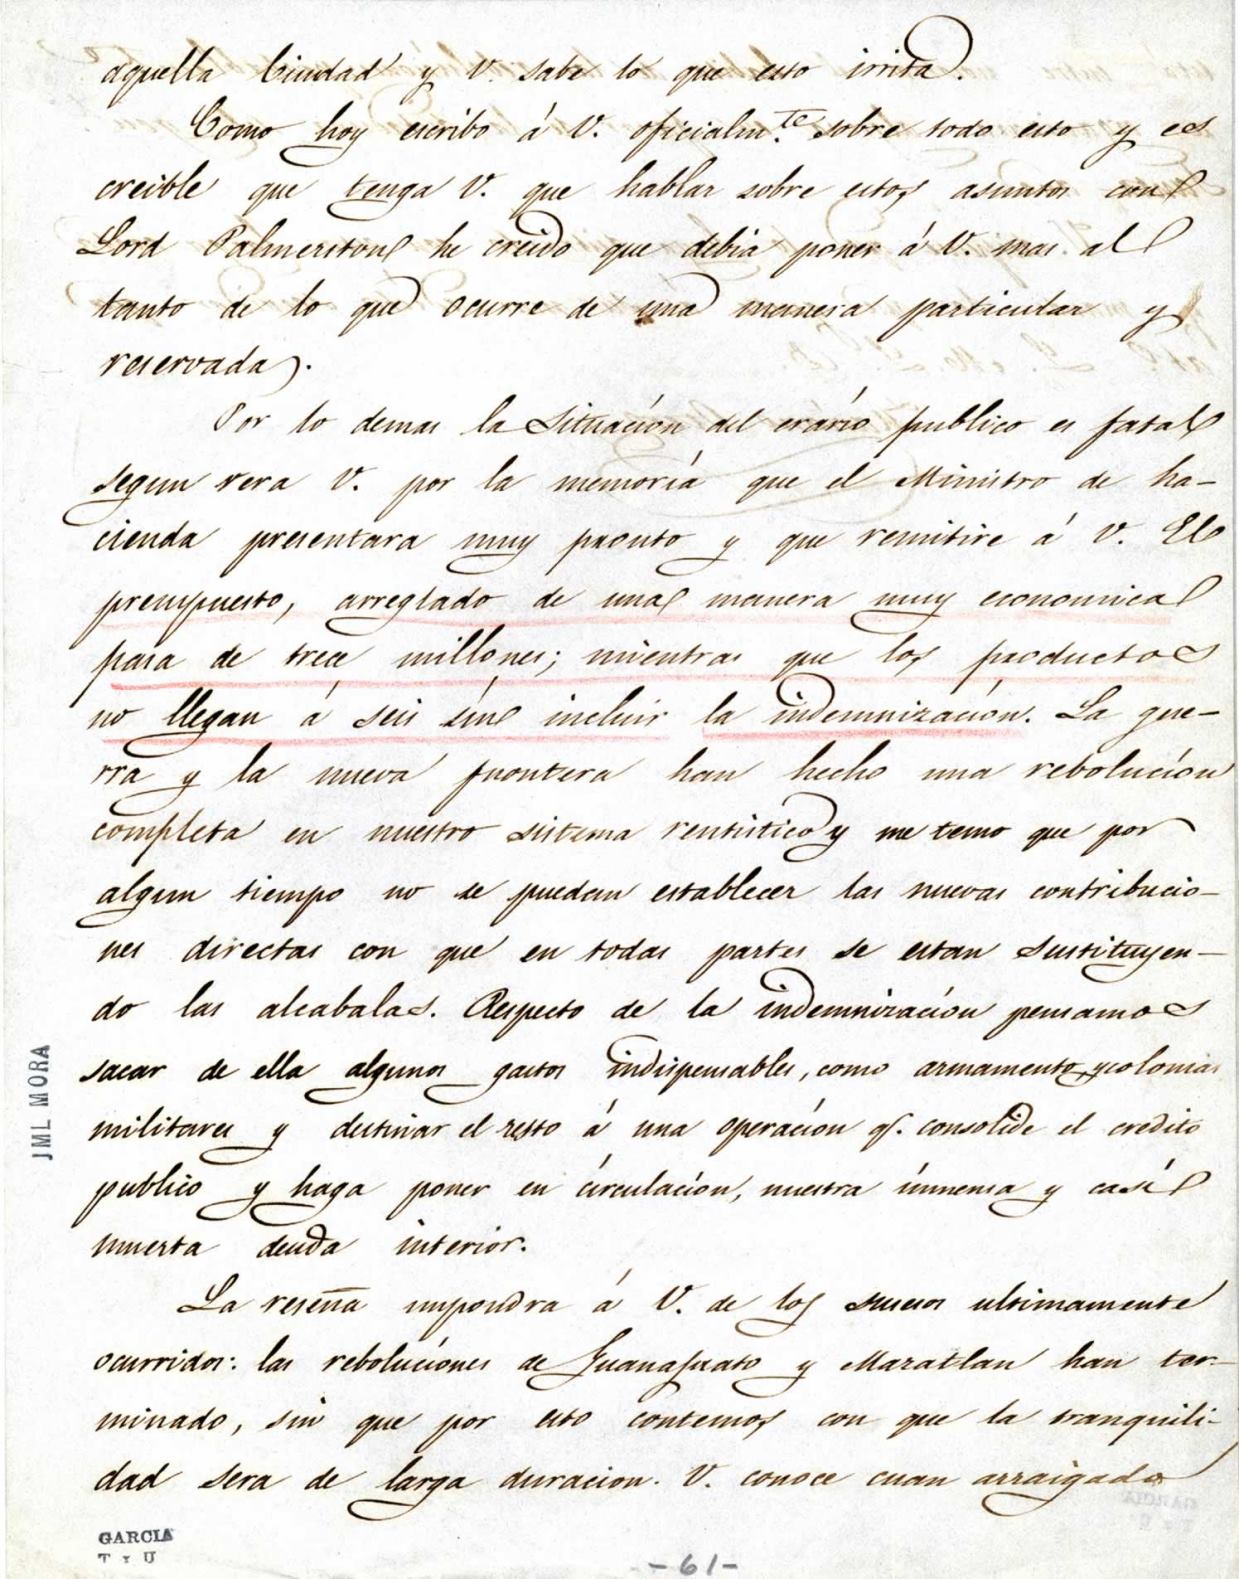 aquella Ciudad y V. sabe lo que esto irrita.
Como hoy escribo á V. oficialm.te sobre todo esto y es
creible que tenga V. que hablar sobre estos asuntos con
Lord Palmerston he creido que debia poner á V. mas al
tanto de lo que ocurre de una manera particular y
reservada.
Por lo demas la Situación del erário publico es fatal
segun vera V. por la memoría que el Ministro de ha-
cienda presentara muy pronto y que remitire á V. El
presupuesto, arreglado de una manera muy economica
pasa de trece millones; mientras que los productos
no llegan á seis sín incluir la indemnización. La gue-
rra y la nueva frontera han hecho una rebolucíon
completa en nuestro sistema rentistico y me temo que por
algun tiempo no se puedan establecer las nuevas contribucio-
nes directas con que en todas partes se estan sustituyen-
do las alcabalas. Respecto de la indemnizacíon pensamos
sacar de ella algunos gastos indispensables, como armamento, y colonias
militares y destinar el resto á una operacíon q. consolide el credito
publico y haga poner en círculacíon, nuestra ínmensa y casí
muerta deuda interior.
La reseña impondra á V. de los sucesos ultimamente
ocurridos: las rebolucíones de Guanajuato y Mazatlan han ter-
minado, sin que por esto contemos con que la tranquili-
dad sera de larga duracion. V. conoce cuan arraigada
JML MORA
GARCIA
T Y U
-61-